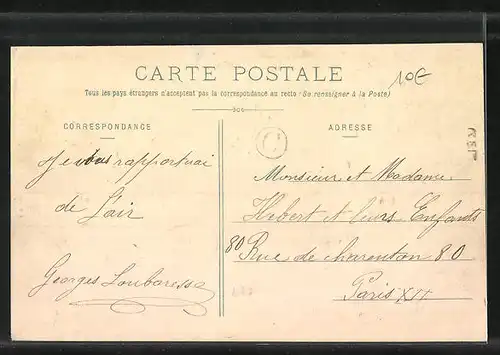 CARTE POSTALE
10€
Tous les pays étrangers n'acceptent pas la correspondance au recto (Se renseigner à la Poste)
CORRESPONDANCE
ADRESSE
C
REP
Je vous rapporterai
de L'air
Georges
Monsieur et Madame
Hebert et leurs Enfants
80 Rue de charenton 80
Paris XII